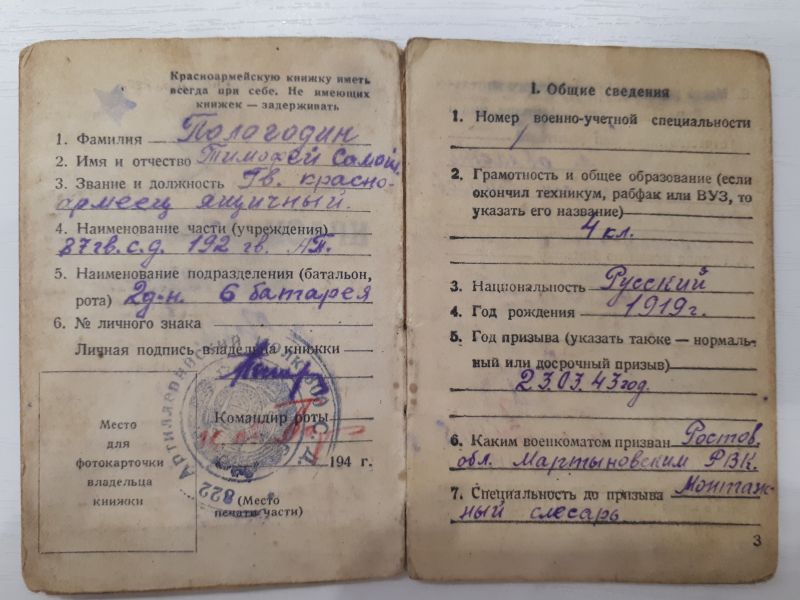 Красноармейскую книжку иметь
всегда при себе. Не имеющих
книжек — задерживать
1. Фамилия Пологодин
2. Имя и отчество Тимофей Самой.
3. Звание и должность Гв. красно-
армеец ящичный.
4. Наименование части (учреждения)
87гв.с.д. 192 гв. АП.
5. Наименование подразделения (батальон,
рота) 2д-н 6 батарея
6. № личного знака
Личная подпись владельца книжки
Командир роты
194 г.
Место
для
фотокарточки
владельца
книжки
(Место
печати части)
Артиллерийский полк
С.Д.
822
I. Общие сведения
1. Номер военно-учетной специальности
2. Грамотность и общее образование (если
окончил техникум, рабфак или ВУЗ, то
указать его название)
4 кл.
3. Национальность Русский
4. Год рождения 1919г.
5. Год призыва (указать также — нормаль-
ный или досрочный призыв)
23.03.43 год.
6. Каким военкоматом призван Ростов.
обл. Мартыновским РВК.
7. Специальность до призыва Монтаж-
ный слесарь
3